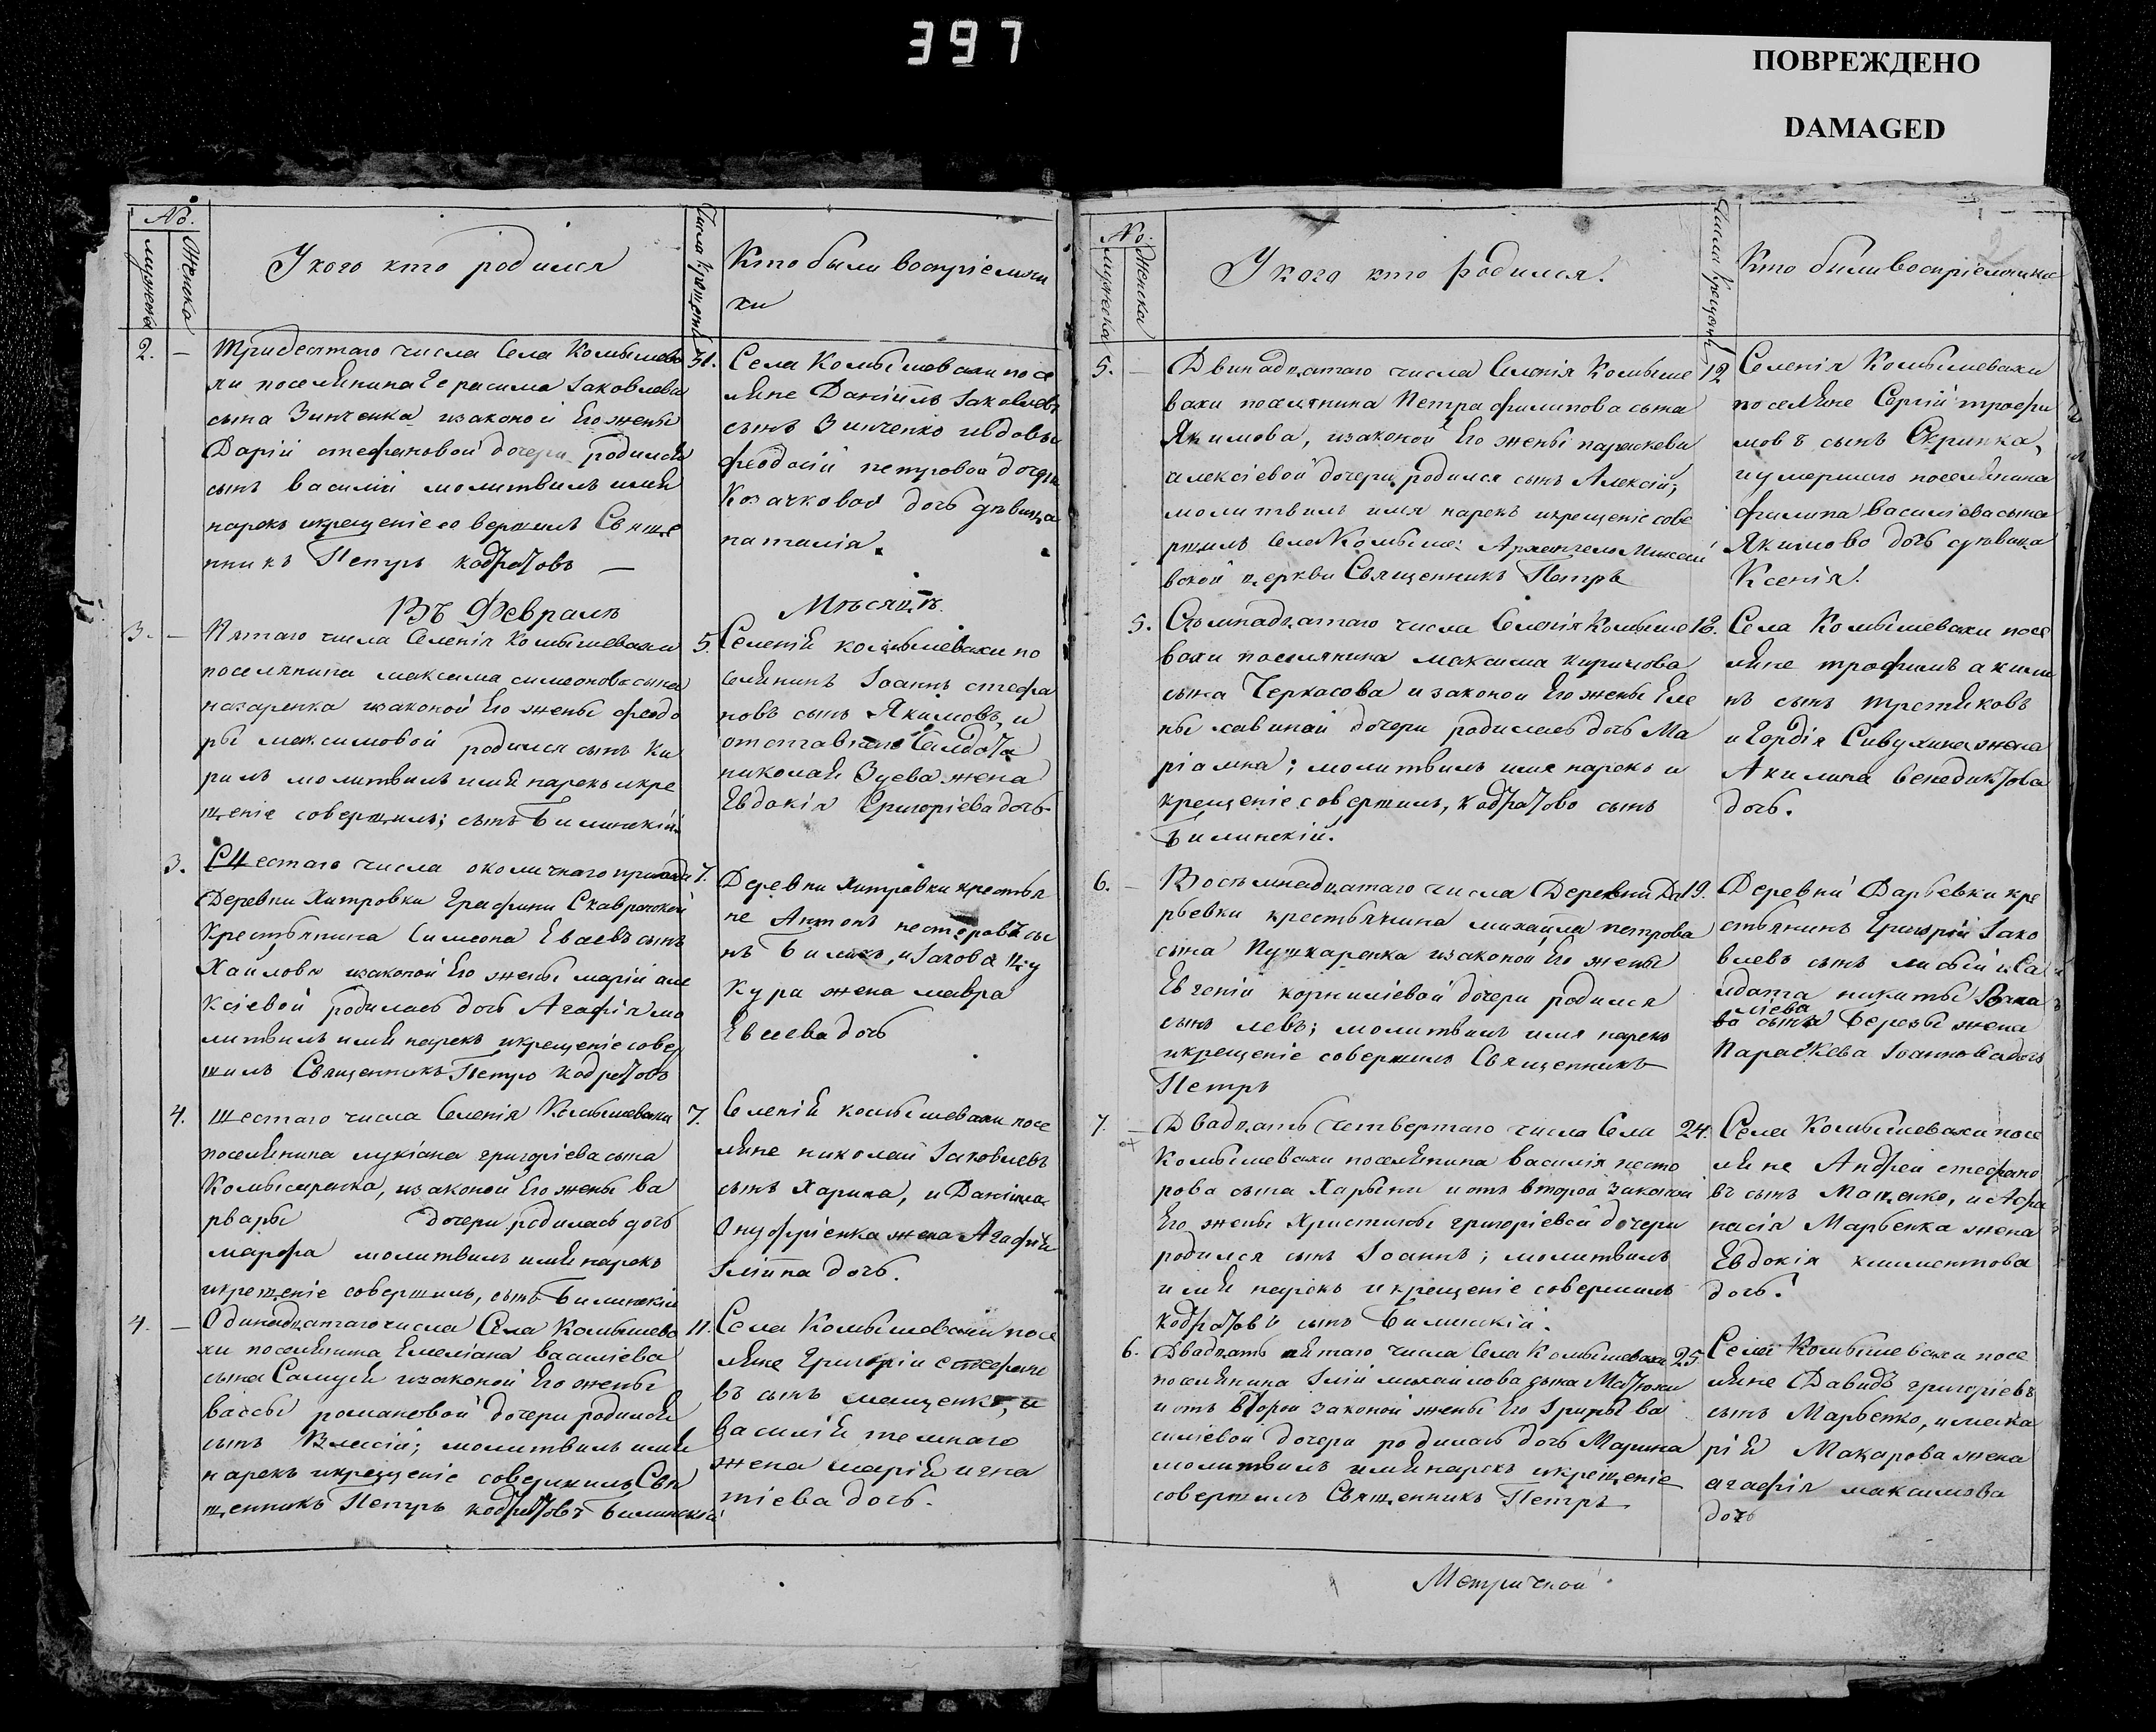 397
ПОВРЕЖДЕНО
DAMAGED
№.
мужеска
Женска
У кого кто родился
Числа крещенія
Кто были воспріемни
ки
2. — Тридесятаго числа Села Комышева
хи поселянина Герасима Іаковлева
сына Зинченка изаконой Его жены
Дарій стефановой дочери родился
сынъ василій молитвилъ имя
нарекъ икрещеніе совершилъ Свяще
нникъ Петръ кодратовъ —
31. Села Комышевахи посе
ляне Даніилъ Іаковлевъ
сынъ Зинченко ивдовы
феодосій петровой дочери
Козачковой дочь дѣвица
наталія.
Въ Февралѣ Мѣсяцѣ.
3. — Пятаго числа Селенія Комышевахи
поселянина максима симеонова сына
назаренка изаконой Его жены феодо
ры максимовой родился сынъ Ки
рилъ молитвилъ имя нарекъ икре
щеніе совершилъ; сынъ Билинскій
5. Селенія комышевахи по
селянинъ Іоаннъ стефа
новъ сынъ Якимовъ, и
отставнаго Салдата
николая Зуева жена
Евдокія Григоріева дочь
3. Шестаго числа околичнаго прихода
Деревни Хитровки Графини Скавронской
Крестьянина Симеона Евсевъ сынъ
Хайлова изаконой Его жены марій але
ксіевой родилась дочь Агафія мо
литвилъ имя нарекъ икрещеніе совер
шилъ Священникъ Петръ кодратовъ
7. Деревни Хитровки крестья
не Антонъ нестеровъ сы
нъ Билыкъ, и Іакова Щу
кура жена мавра
Евсеева дочь
4. шестаго числа Селенія Комышевахи
поселянина лукіана григоріева сына
Комысаренка, изаконой Его жены ва
рвары дочери родилась дочь
марфа молитвилъ имя нарекъ
икрещеніе совершилъ, сынъ Билинскій
7. Селенія комышевахи посе
ляне николай Іаковлевъ
сынъ Харина, и Даніила
Онуфріенка жена Агафія
Іліина дочь.
4. — Одинадцатаго числа Села Комышева
хи поселянина Емеліана василіева
сына Самуся изаконой Его жены
вассы романовой дочери родился
сынъ Власій; молитвилъ имя
нарекъ икрещеніе совершилъ Свя
щенникъ Петръ кодратовъ Билинскій
11. Села Комышевахи посе
ляне Григорій стефано
въ сынъ мащенко, и
василія темнаго
жена марія игна
тіева дочь.
№.
мужеска
Женска
У кого кто родился.
Числа крещенія
Кто были воспріемники
5. — Двинадцатаго числа Селенія Комыше
вахи поселянина Петра филипова сына
Якимова, изаконой Его жены параскевы
алексіевой дочери родился сынъ Алексій;
молитвилъ имя нарекъ икрещеніе сове
ршилъ Села Комыше: Архангело Михаи
вской церкви Священникъ Петръ
12 Селенія Комышевахи
поселяне Сергій трофи
мовъ сынъ Скрипка,
иумершаго поселянина
филипа василіева сына
Якимово дочь дѣвица
Ксенія.
5. Семнадцатаго числа Селенія Комыше
вахи поселянина максима кирилова
сына Черкасова изаконой Его жены Еле
ны савиной дочери родилась дочь Ма
ріамна; молитвилъ имя нарекъ и
крещеніе совершилъ, кодратово сынъ
Билинскій.
18. Села Комышевахи посе
ляне трофимъ акими
нъ сынъ третяковъ
и Гордія Сивухина жена
Акилина венедиктова
дочь.
6. — Восъмнадцатаго числа Деревни Да
рьевки крестьянина михайла петрова
сына Пушкаренка изаконой Его жены
Евгеній корниліевой дочери родился
сынъ левъ; молитвилъ имя нарекъ
икрещеніе совершилъ Священникъ
Петръ
19. Деревни Дарьевки кре
стьянинъ Григорій Іако
влевъ сынъ лисый и Са
лдата никиты
ва сына Березы жена
Параскева Іоаннова дочь
7. — Двадцать Четвертаго числа Села
Комышевахи поселянина василія несто
рова сына Харыни иотъ второй законой
Его жены Христины григоріевой дочери
родился сынъ Іоаннъ; молитвилъ
имя нарекъ икрещеніе совершилъ
кодратовъ сынъ Билинскій.
24. Села Комышевахи посе
ляне Андрей стефано
въ сынъ Мащенко, и Афа
насія Марьенка жена
Евдокія климентова
дочь.
6. Двадцать пятаго числа Села Комышевахи
поселянина Ілій михайлова сына Матюхи
иотъ второй законой жены Его Ірины ва
силіевой дочери родилась дочь Марина
молитвилъ имя нарекъ икрещеніе
совершилъ Священникъ Петръ
25. Села Комышевахи посе
ляне Давидъ григоріевъ
сынъ Марьенко, имака
рія Макарова жена
агафія максимова
дочь
Метричной